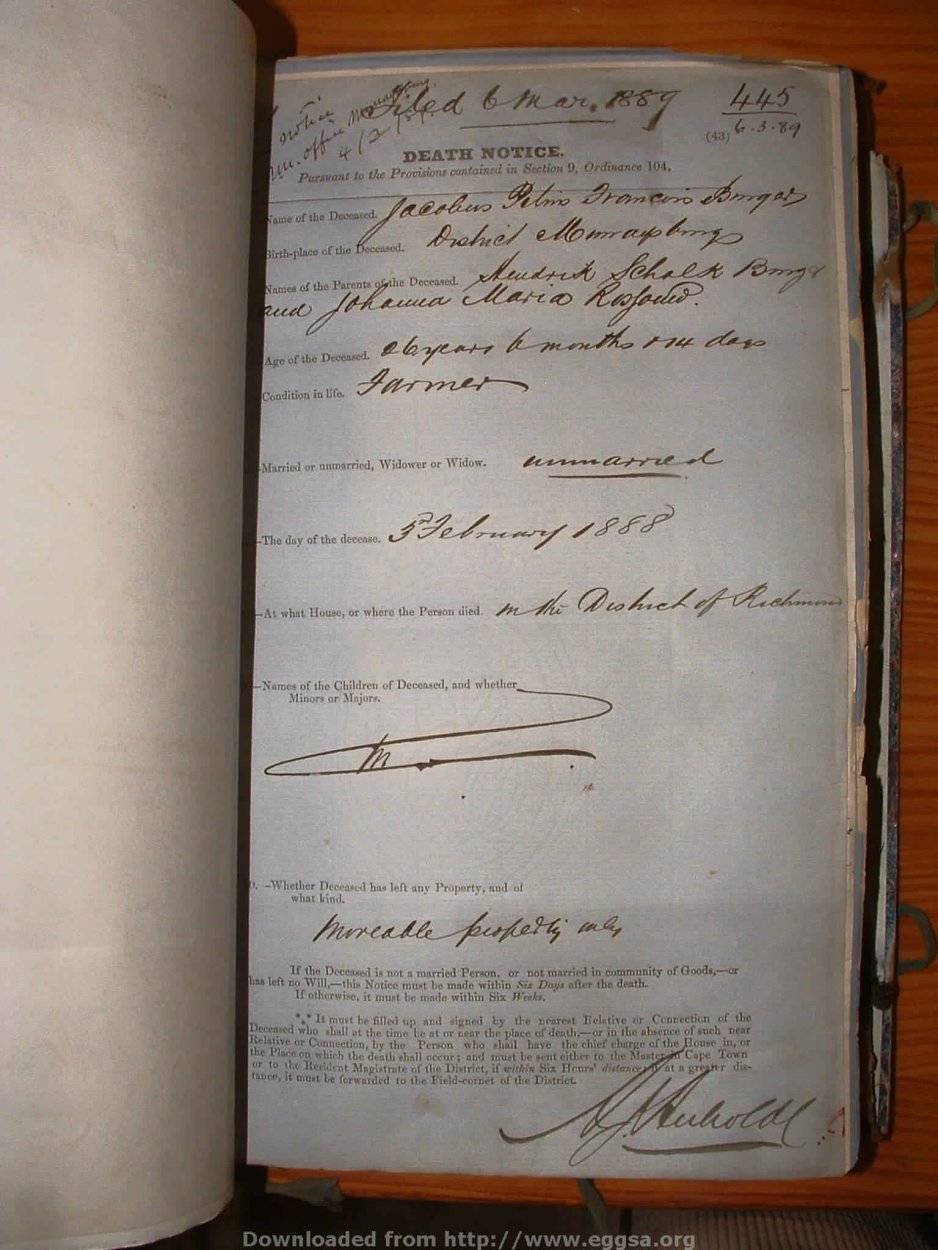 notice
office
4/2/89
Filed 6 Mar. 1889
445
(43) 6.3.89
DEATH NOTICE.
Pursuant to the Provisions contained in Section 9, Ordinance 104.
Name of the Deceased. Jacobus Petrus Francois Burger
Birth-place of the Deceased. District Murraysburg
Names of the Parents of the Deceased. Hendrik Schalk Burger
and Johanna Maria
Age of the Deceased. 26 years 6 months & 14 days
Condition in life. Farmer
Married or unmarried, Widower or Widow. unmarried
The day of the decease. February 1888
At what House, or where the Person died. In the District of Richmond
—Names of the Children of Deceased, and whether
Minors or Majors.
—Whether Deceased has left any Property, and of
what kind.
Moveable property only
If the Deceased is not a married Person, or not married in community of Goods,—or
has left no Will,—this Notice must be made within Six Days after the death.
If otherwise, it must be made within Six Weeks.
*** It must be filled up and signed by the nearest Relative or Connection of the
Deceased who shall at the time be at or near the place of death,—or in the absence of such near
Relative or Connection, by the Person who shall have the chief charge of the House in, or
the Place on which the death shall occur; and must be sent either to the Master in Cape Town
or to the Resident Magistrate of the District, if within Six Hours' distance; if at a greater dis-
tance, it must be forwarded to the Field-cornet of the District.
Downloaded from http://www.eggsa.org